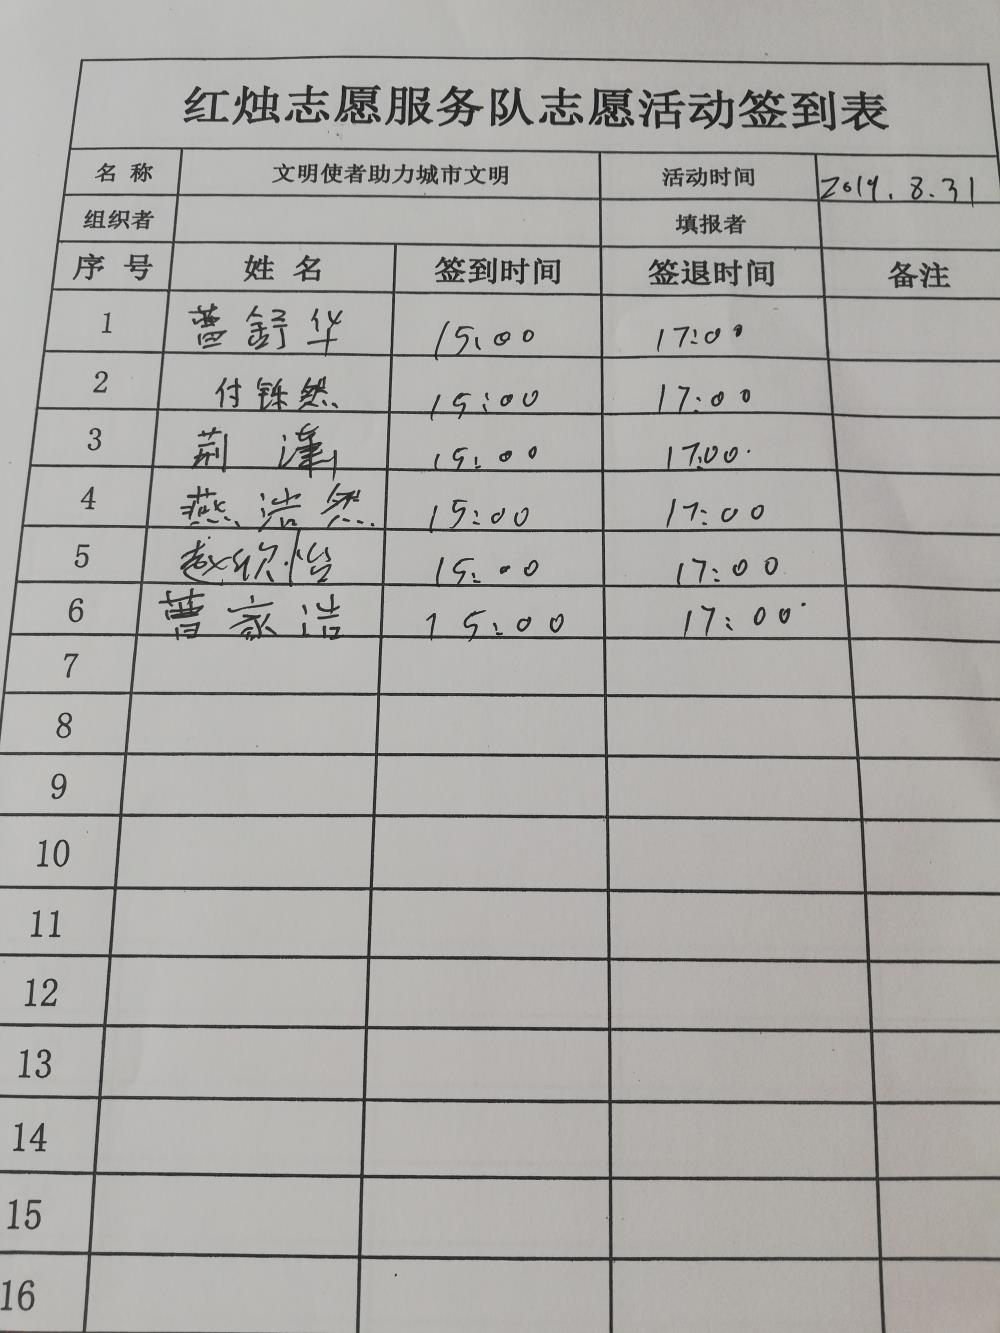 红烛志愿服务队志愿活动签到表
名 称 文明使者助力城市文明 活动时间 2019.8.31
组织者 填报者
序 号 姓 名 签到时间 签退时间 备注
1 曹舒华 15:00 17:00
2 付铄然 15:00 17:00
3 荆 15:00 17:00
4 燕浩然 15:00 17:00
5 赵欣怡 15:00 17:00
6 曹家浩 15:00 17:00
7
8
9
10
11
12
13
14
15
16